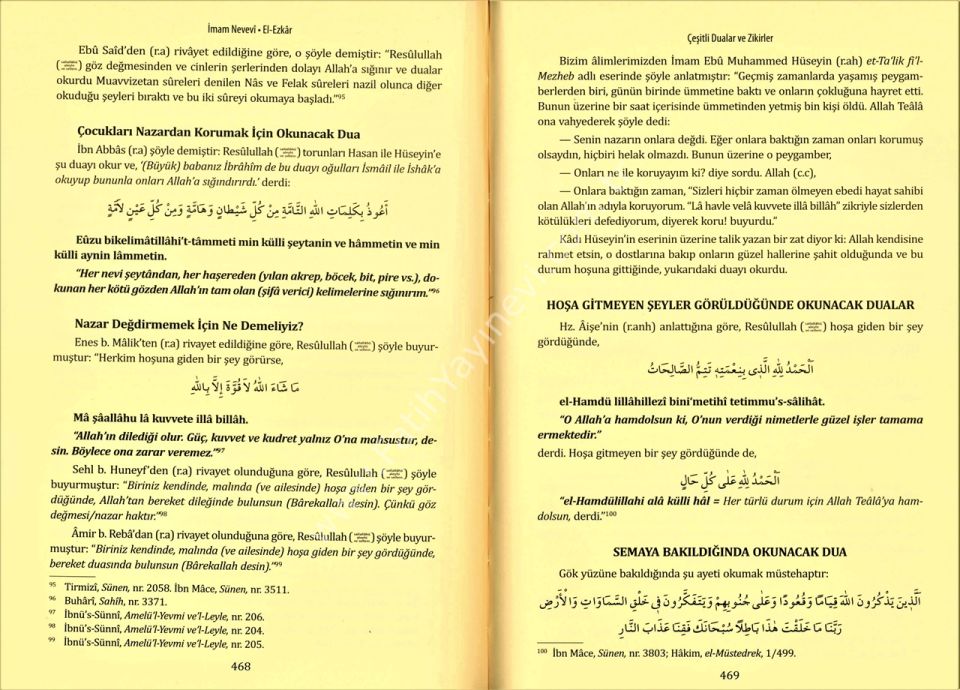 İmam Nevevî • El-Ezkâr
Ebû Saîd'den (r.a) rivâyet edildiğine göre, o şöyle demiştir: "Resûlullah
( ) göz değmesinden ve cinlerin şerlerinden dolayı Allah'a sığınır ve dualar
okurdu Muavvizetan sûreleri denilen Nâs ve Felak sûreleri nazil olunca diğer
okuduğu şeyleri bıraktı ve bu iki sûreyi okumaya başladı."95
Çocukları Nazardan Korumak İçin Okunacak Dua
İbn Abbâs (r.a) şöyle demiştir: Resûlullah ( ) torunları Hasan ile Hüseyin'e
şu duayı okur ve, '(Büyük) babanız İbrâhîm de bu duayı oğulları İsmâil ile İshâk'a
okuyup bununla onları Allah'a sığındırırdı.' derdi:
أَعُوذُ بِكَلِمَاتِ اللهِ التَّامَّةِ مِنْ كُلِّ شَيْطَانٍ وَهَامَّةٍ وَمِنْ كُلِّ عَيْنٍ لَامَّةٍ
Eûzu bikelimâtillâhi't-tâmmeti min külli şeytanin ve hâmmetin ve min
külli aynin lâmmetin.
"Her nevi şeytândan, her haşereden (yılan akrep, böcek, bit, pire vs.), do-
kunan her kötü gözden Allah'ın tam olan (şifâ verici) kelimelerine sığınırım."96
Nazar Değdirmemek İçin Ne Demeliyiz?
Enes b. Mâlik'ten (r.a) rivayet edildiğine göre, Resûlullah ( ) şöyle buyur-
muştur: "Herkim hoşuna giden bir şey görürse,
مَا شَاءَ اللهُ لَا قُوَّةَ إِلَّا بِاللهِ
Mâ şâallâhu lâ kuvvete illâ billâh.
"Allah'ın dilediği olur. Güç, kuvvet ve kudret yalnız O'na mahsustur, de-
sin. Böylece ona zarar veremez."97
Sehl b. Huneyf'den (r.a) rivayet olunduğuna göre, Resûlullah ( ) şöyle
buyurmuştur: "Biriniz kendinde, malında (ve ailesinde) hoşa giden bir şey gör-
düğünde, Allah'tan bereket dileğinde bulunsun (Bârekallah desin). Çünkü göz
değmesi/nazar haktır."98
Âmir b. Rebâ'dan (r.a) rivayet olunduğuna göre, Resûlullah ( ) şöyle buyur-
muştur: "Biriniz kendinde, malında (ve ailesinde) hoşa giden bir şey gördüğünde,
bereket duasında bulunsun (Bârekallah desin)."99
95 Tirmizî, Sünen, nr. 2058. İbn Mâce, Sünen, nr. 3511.
96 Buhârî, Sahîh, nr. 3371.
97 İbnü's-Sünnî, Amelü'l-Yevmi ve'l-Leyle, nr. 206.
98 İbnü's-Sünnî, Amelü'l-Yevmi ve'l-Leyle, nr. 204.
99 İbnü's-Sünnî, Amelü'l-Yevmi ve'l-Leyle, nr. 205.
468
Çeşitli Dualar ve Zikirler
Bizim âlimlerimizden İmam Ebû Muhammed Hüseyin (r.ah) et-Ta'lik fi'l-
Mezheb adlı eserinde şöyle anlatmıştır: "Geçmiş zamanlarda yaşamış peygam-
berlerden biri, günün birinde ümmetine baktı ve onların çokluğuna hayret etti.
Bunun üzerine bir saat içerisinde ümmetinden yetmiş bin kişi öldü. Allah Teâlâ
ona vahyederek şöyle dedi:
— Senin nazarın onlara değdi. Eğer onlara baktığın zaman onları korumuş
olsaydın, hiçbiri helak olmazdı. Bunun üzerine o peygamber,
— Onları ne ile koruyayım ki? diye sordu. Allah (c.c),
— Onlara baktığın zaman, "Sizleri hiçbir zaman ölmeyen ebedi hayat sahibi
olan Allah'ın adıyla koruyorum. "Lâ havle velâ kuvvete illâ billâh" zikriyle sizlerden
kötülükleri defediyorum, diyerek koru! buyurdu."
Kâdı Hüseyin'in eserinin üzerine talik yazan bir zat diyor ki: Allah kendisine
rahmet etsin, o dostlarına bakıp onların güzel hallerine şahit olduğunda ve bu
durum hoşuna gittiğinde, yukarıdaki duayı okurdu.
HOŞA GİTMEYEN ŞEYLER GÖRÜLDÜĞÜNDE OKUNACAK DUALAR
Hz. Âişe'nin (r.anh) anlattığına göre, Resûlullah ( ) hoşa giden bir şey
gördüğünde,
اَلْحَمْدُ لِلهِ الَّذِي بِنِعْمَتِهِ تَتِمُّ الصَّالِحَاتُ
el-Hamdü lillâhillezî bini'metihî tetimmu's-sâlihât.
"O Allah'a hamdolsun ki, O'nun verdiği nimetlerle güzel işler tamama
ermektedir."
derdi. Hoşa gitmeyen bir şey gördüğünde de,
اَلْحَمْدُ لِلهِ عَلَى كُلِّ حَالٍ
"el-Hamdülillahi alâ külli hâl = Her türlü durum için Allah Teâlâ'ya ham-
dolsun, derdi."100
SEMAYA BAKILDIĞINDA OKUNACAK DUA
Gök yüzüne bakıldığında şu ayeti okumak müstehaptır:
اَلَّذِينَ يَذْكُرُونَ اللهَ قِيَامًا وَقُعُودًا وَعَلَى جُنُوبِهِمْ وَيَتَفَكَّرُونَ فِي خَلْقِ السَّمَاوَاتِ وَالْأَرْضِ
رَبَّنَا مَا خَلَقْتَ هٰذَا بَاطِلًا سُبْحَانَكَ فَقِنَا عَذَابَ النَّارِ
100 İbn Mâce, Sünen, nr. 3803; Hâkim, el-Müstedrek, 1/499.
469